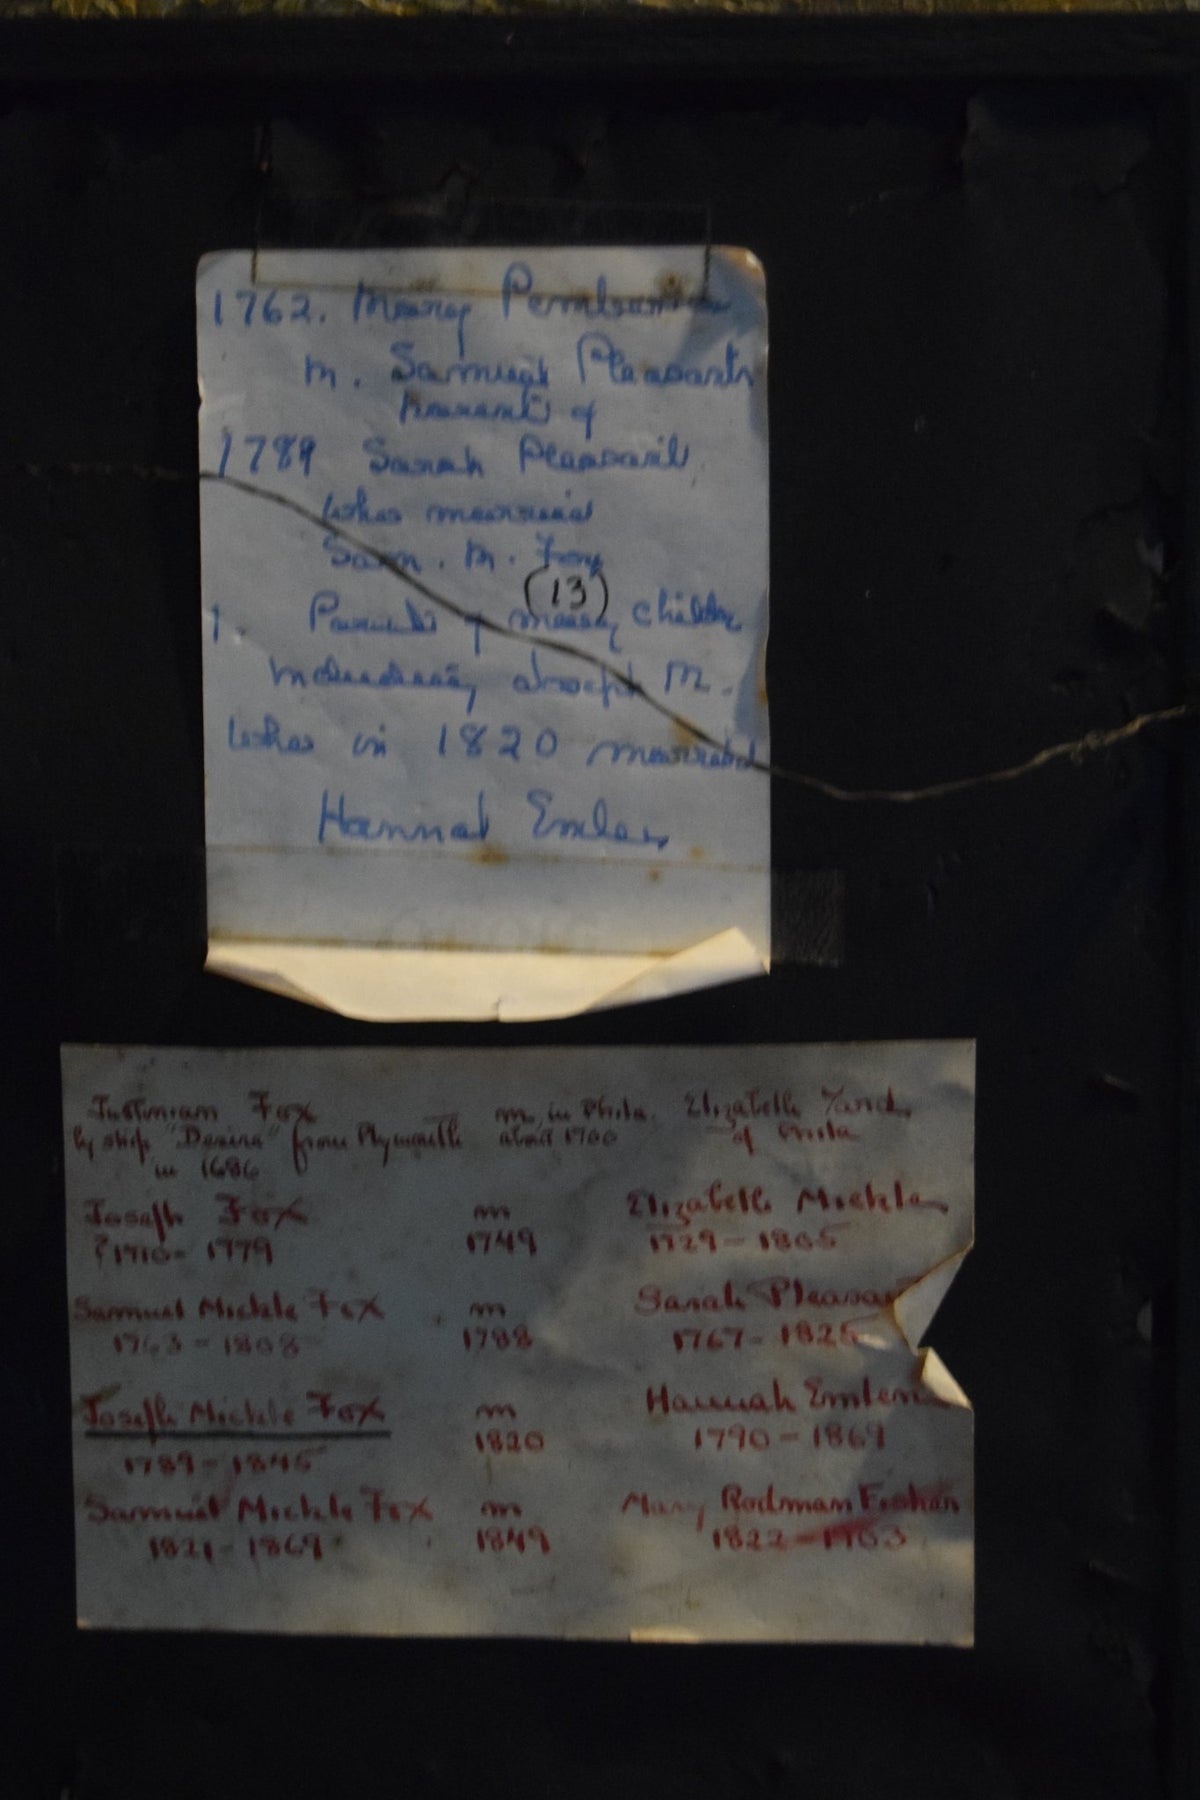 1762. Mary Pemberton
m. Samuel Pleasants
parents of
1789 Sarah Pleasants
who married
Sam. M. Fox
(13)
1. Parents of many children
including Joseph M.
who in 1820 married
Hannah Emlen
Justinian Fox m. in Phila. Elizabeth Yard
by ship "Desire" from Plymouth about 1700 of Phila
in 1686
Joseph Fox m Elizabeth Mickle
?1710 - 1779 1749 1729 - 1805
Samuel Mickle Fox m Sarah Pleasa
1763 - 1808 1788 1767 - 1825
Joseph Mickle Fox m Hannah Emlen
1789 - 1845 1820 1790 - 1869
Samuel Mickle Fox m Mary Rodman Fisher
1821 - 1869 1849 1822 - 1903